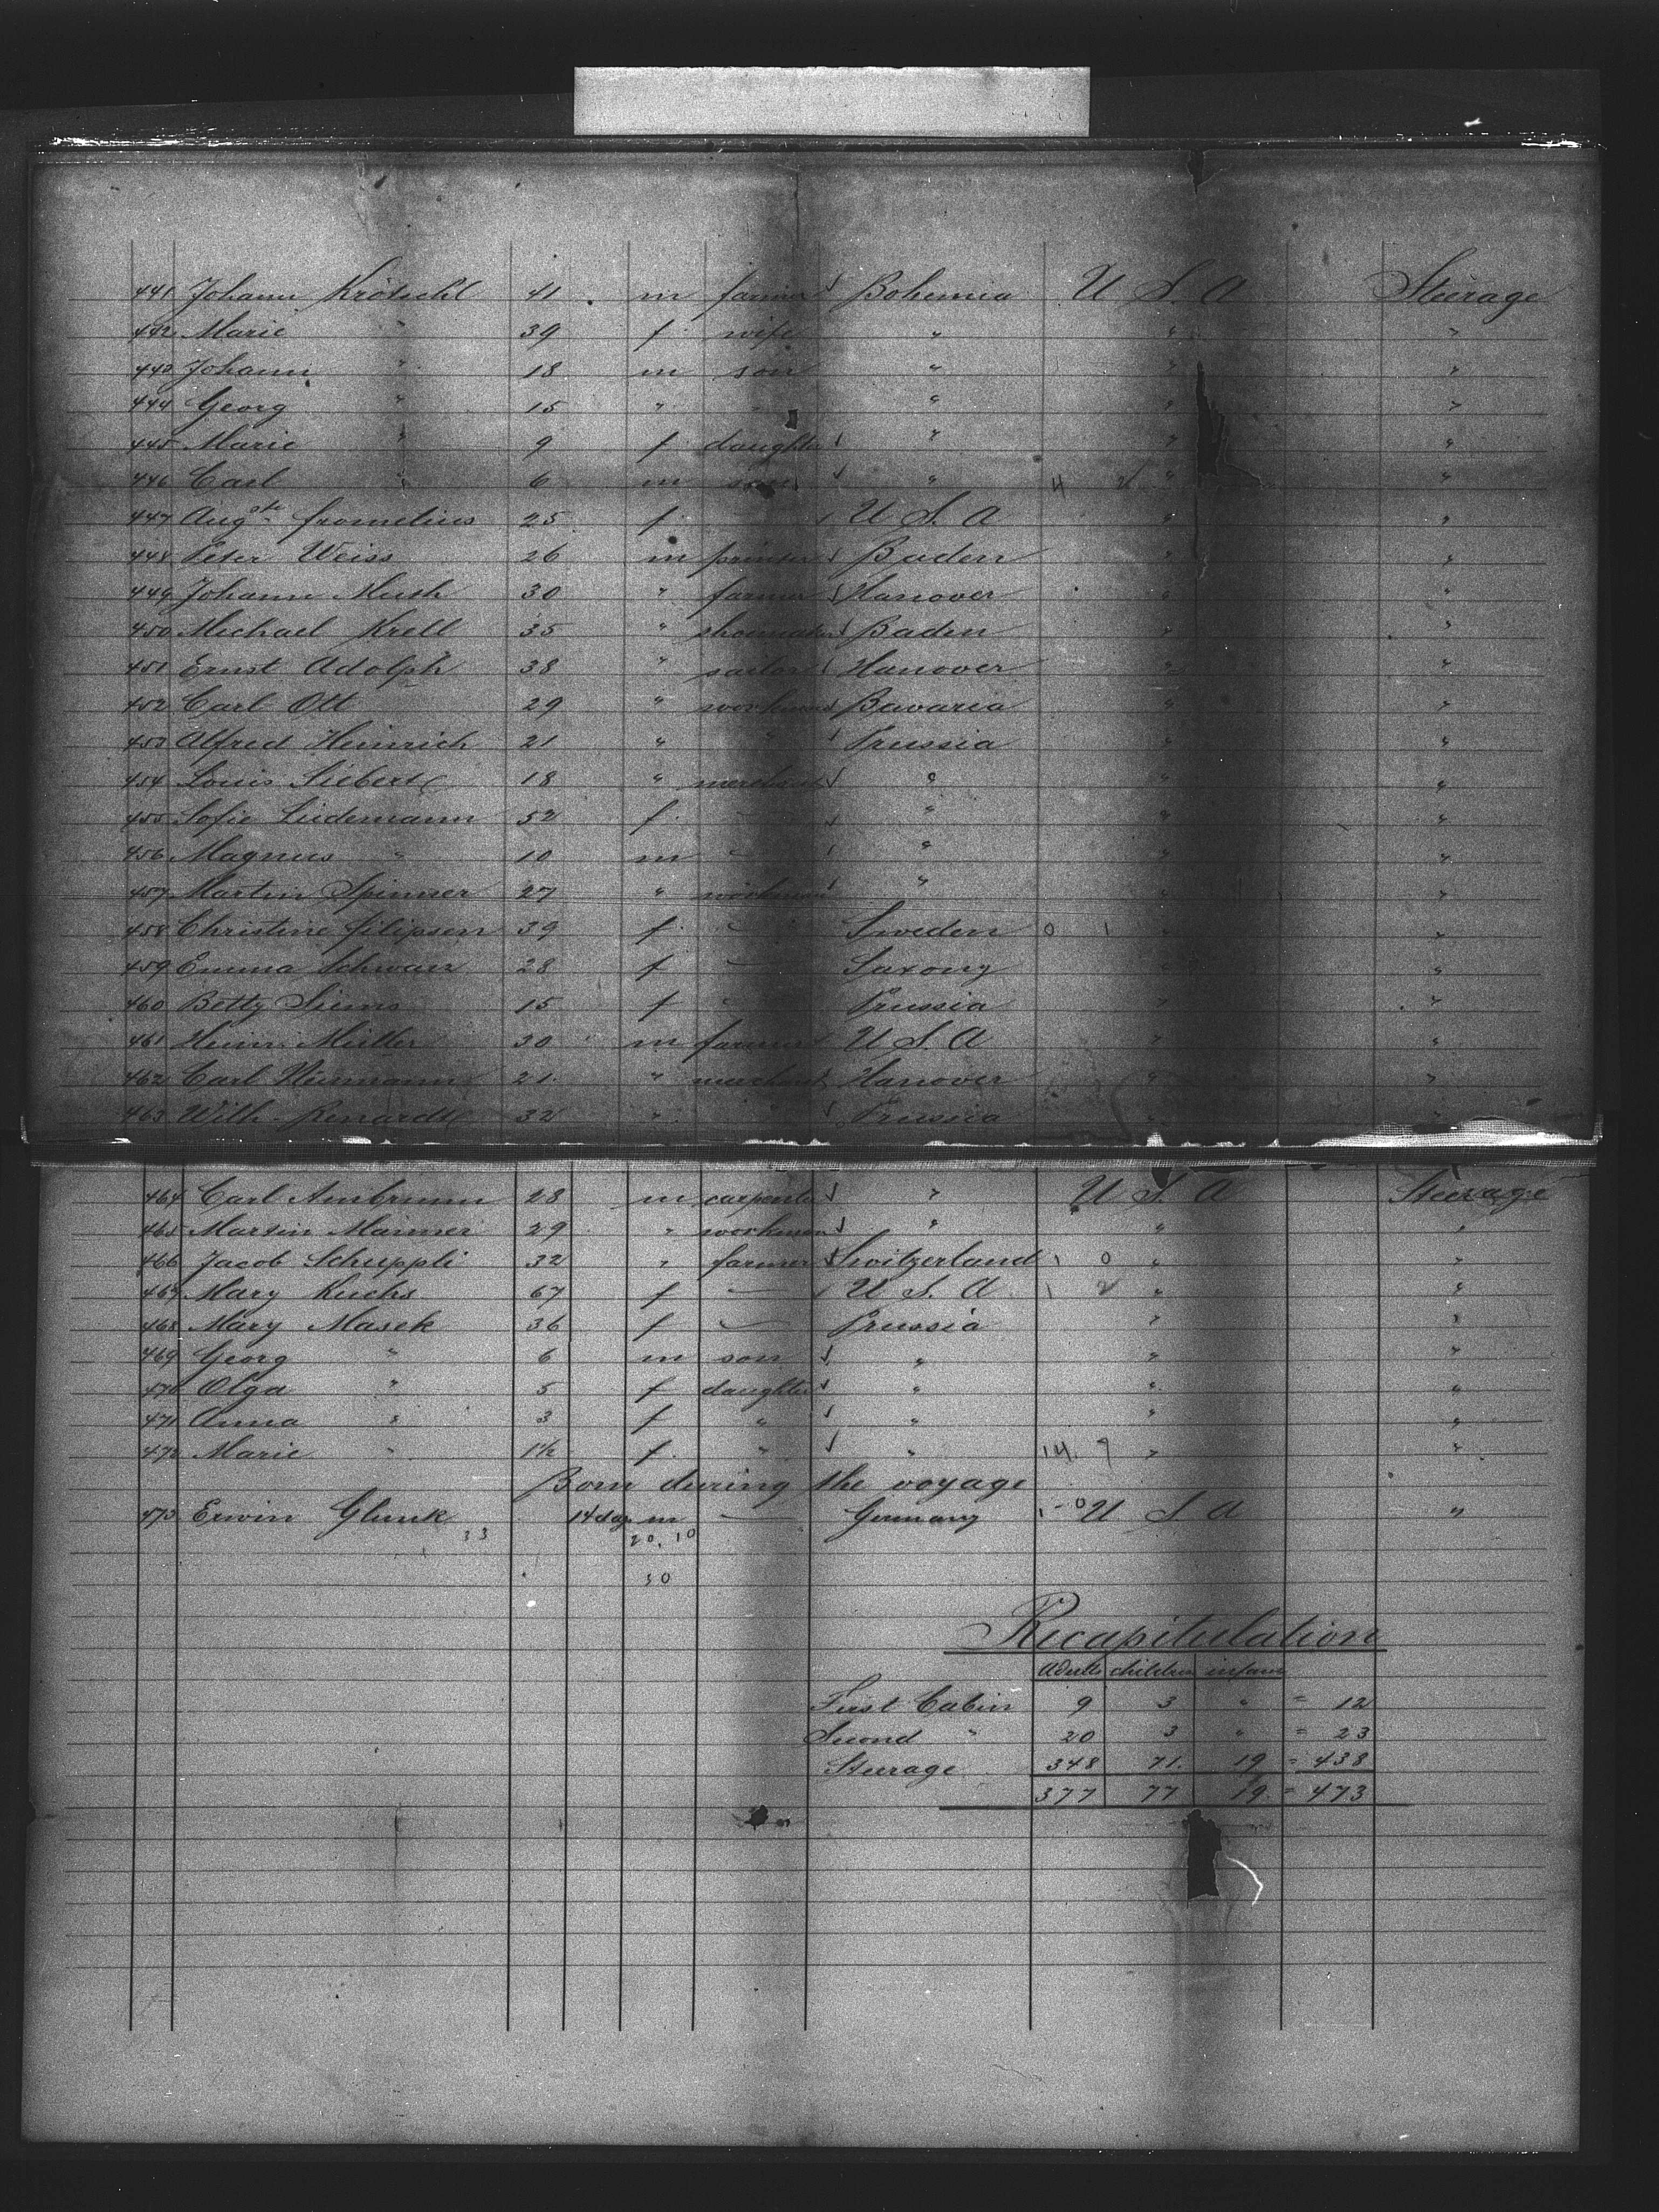 441 Johann Krötschl 41 m farmer Bohemia U S. A Steerage
442 Marie " 39 f wife " " "
443 Johann " 18 m son " " "
444 Georg " 15 " " " " "
445 Marie " 9 f daughter " " "
446 Carl " 6 m son " 4 2 " "
447 Augste fromelius 25 f U S. A " "
448 Peter Weiss 26 m Baden " "
449 Johann Muth 30 " farmer Hanover " "
450 Michael Krell 35 " shoemaker Baden " "
451 Ernst Adolph 38 " sailor Hanover " "
452 Carl Ott 29 " workman Bavaria " "
453 Alfred Heinrich 21 " " Prussia " "
454 Louis Siebert 18 " merchant " " "
455 Sofie Liedemann 52 f. - " " "
456 Magnus " 10 m - " " "
457 Martin Spinner 27 " workman " " "
458 Christine filipsen 39 f. - Sweden 0 1 " "
459 Emma 28 f - Saxony " "
460 Betty Siems 15 f - Prussia " "
461 Heinr. Müller 30 m farmer U S. A " "
462 Carl 21. " merchant Hanover " "
463 Wilh. Renardt 32 " " Prussia " "
464 Carl Ambrunn 28 m carpenter " U S. A Steerage
465 Martin 29 " workman " " "
466 Jacob Schuppli 32 " farmer Switzerland 1 0 " "
467 Mary Kuchs 67 f - U S. A. 1 2 " "
468 Mary Masek 36 f - Prussia " "
469 Georg " 6 m son " " "
470 Olga " 5 f daughter " " "
471 Anna " 3 f " " " "
472 Marie " 1½ f. " " 14. 9 " "
Born during the voyage
473 Erwin Glunk 14 day m - Germany 1-0 U S A "
33 20, 10
30
Recapitulation
Adults children infans
First Cabin 9 3 " = 12
Second " 20 3 " = 23
Steerage 348 71. 19 = 438
377 77 19 = 473